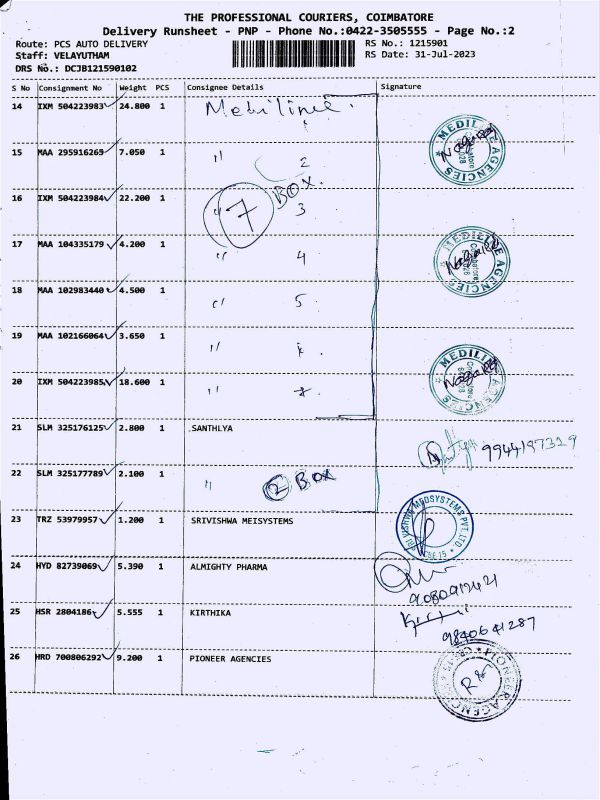 THE PROFESSIONAL COURIERS, COIMBATORE
Delivery Runsheet - PNP - Phone No.:0422-3505555 - Page No.:2
Route: PCS AUTO DELIVERY
RS No.: 1215901
Staff: VELAYUTHAM
RS Date: 31-Jul-2023
DRS No.: DCJB121590102
S No Consignment No Weight PCS Consignee Details Signature
14 IXM 504223983 24.800 1 Mediline
MEDILINE AGENCIES
15 MAA 295916265 7.050 1 " 2
7 BOX.
16 IXM 504223984 22.200 1 " 3
17 MAA 104335179 4.200 1 " 4
MEDILINE AGENCIES
18 MAA 102983440 4.500 1 " 5
19 MAA 102166064 3.650 1 "
20 IXM 504223985 18.600 1 "
MEDILINE AGENCIES
21 SLM 325176125 2.800 1 SANTHLYA
9944197329
22 SLM 325177789 2.100 1 " 2 BOX
23 TRZ 53979957 1.200 1 SRIVISHWA MEISYSTEMS
SRI VISHWA MEDSYSTEMS PVT.LTD
24 HYD 82739069 5.390 1 ALMIGHTY PHARMA
25 HSR 2804186 5.555 1 KIRTHIKA
9840641287
26 HRD 700806292 9.200 1 PIONEER AGENCIES
PIONEER AGENCIES